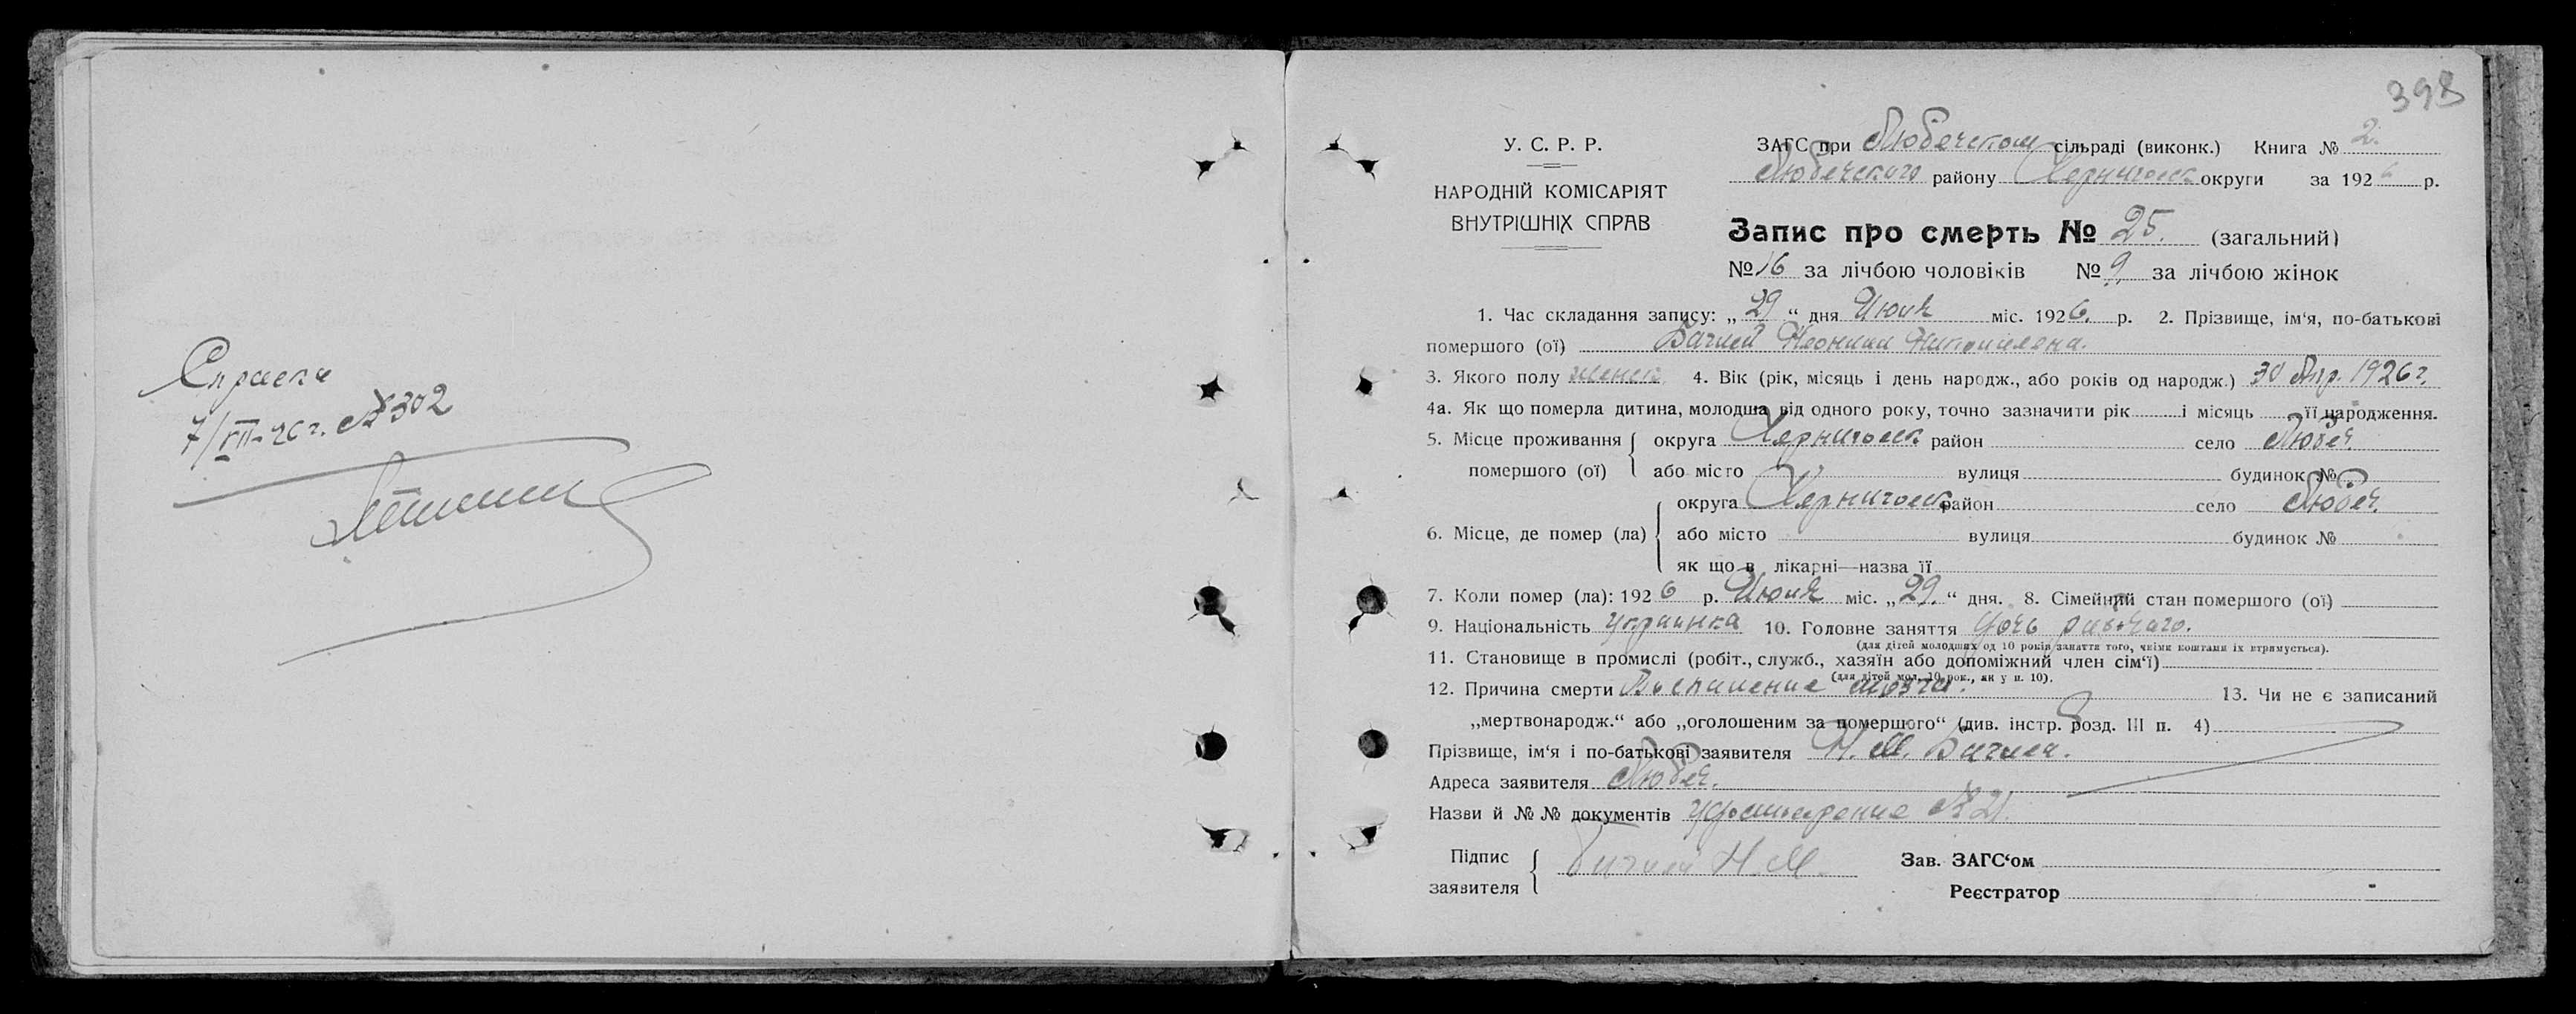 Справка
7/VII-26 г. №302
398
У. С. Р. Р.
НАРОДНІЙ КОМІСАРІЯТ
ВНУТРІШНІХ СПРАВ
ЗАГС при Любечском сільраді (виконк.) Книга № 2.
Любечского району Черниговск округи за 1926 р.
Запис про смерть № 25. (загальний)
№ 16 за лічбою чоловіків № 9 за лічбою жінок
1. Час складання запису: „29“ дня Июня міс. 1926. р. 2. Прізвище, ім‘я, по-батькові
помершого (ої)
3. Якого полу женск. 4. Вік (рік, місяць і день народж., або років од народж.) 30 Апр. 1926 г.
4а. Як що померла дитина, молодша від одного року, точно зазначити рік і місяць її народження.
5. Місце проживання округа Черниговск район село Любеч.
помершого (ої) або місто вулиця будинок №
округа Черниговск район село Любеч.
6. Місце, де помер (ла) або місто вулиця будинок №
як що в лікарні—назва її
7. Коли помер (ла): 1926 р. Июня міс. „29.“ дня. 8. Сімейний стан помершого (ої)
9. Національність Украинка 10. Головне заняття дочь рабочаго.
(для дітей молодших од 10 років заняття того, чиїми коштами їх втримується).
11. Становище в промислі (робіт., служб., хазяїн або допоміжний член сім‘ї)
(для дітей мол. 10 рок., як у п. 10).
12. Причина смерти Воспаление мозга. 13. Чи не є записаний
„мертвонародж.“ або „оголошеним за помершого“ (див. інстр. розд. III п. 4)
Прізвище, ім‘я і по-батькові заявителя Н. М.
Адреса заявителя Любеч.
Назви й № № документів удостоверение № 21.
Підпис Н. М. Зав. ЗАГС‘ом
заявителя Реєстратор